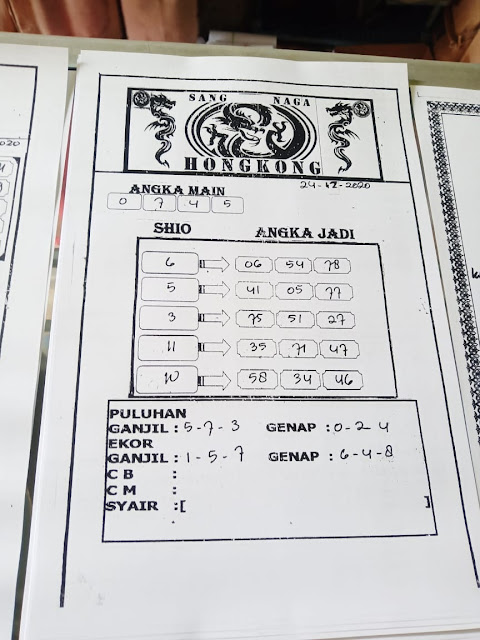 SANG NAGA
HONGKONG
24-12-2020
ANGKA MAIN
0 7 4 5
SHIO ANGKA JADI
6 06 54 78
5 41 05 77
3 75 51 27
11 35 71 47
10 58 34 46
PULUHAN
GANJIL : 5-7-3 GENAP : 0-2 4
EKOR
GANJIL : 1-5-7 GENAP : 6-4-8
C B :
C M :
SYAIR :[ ]